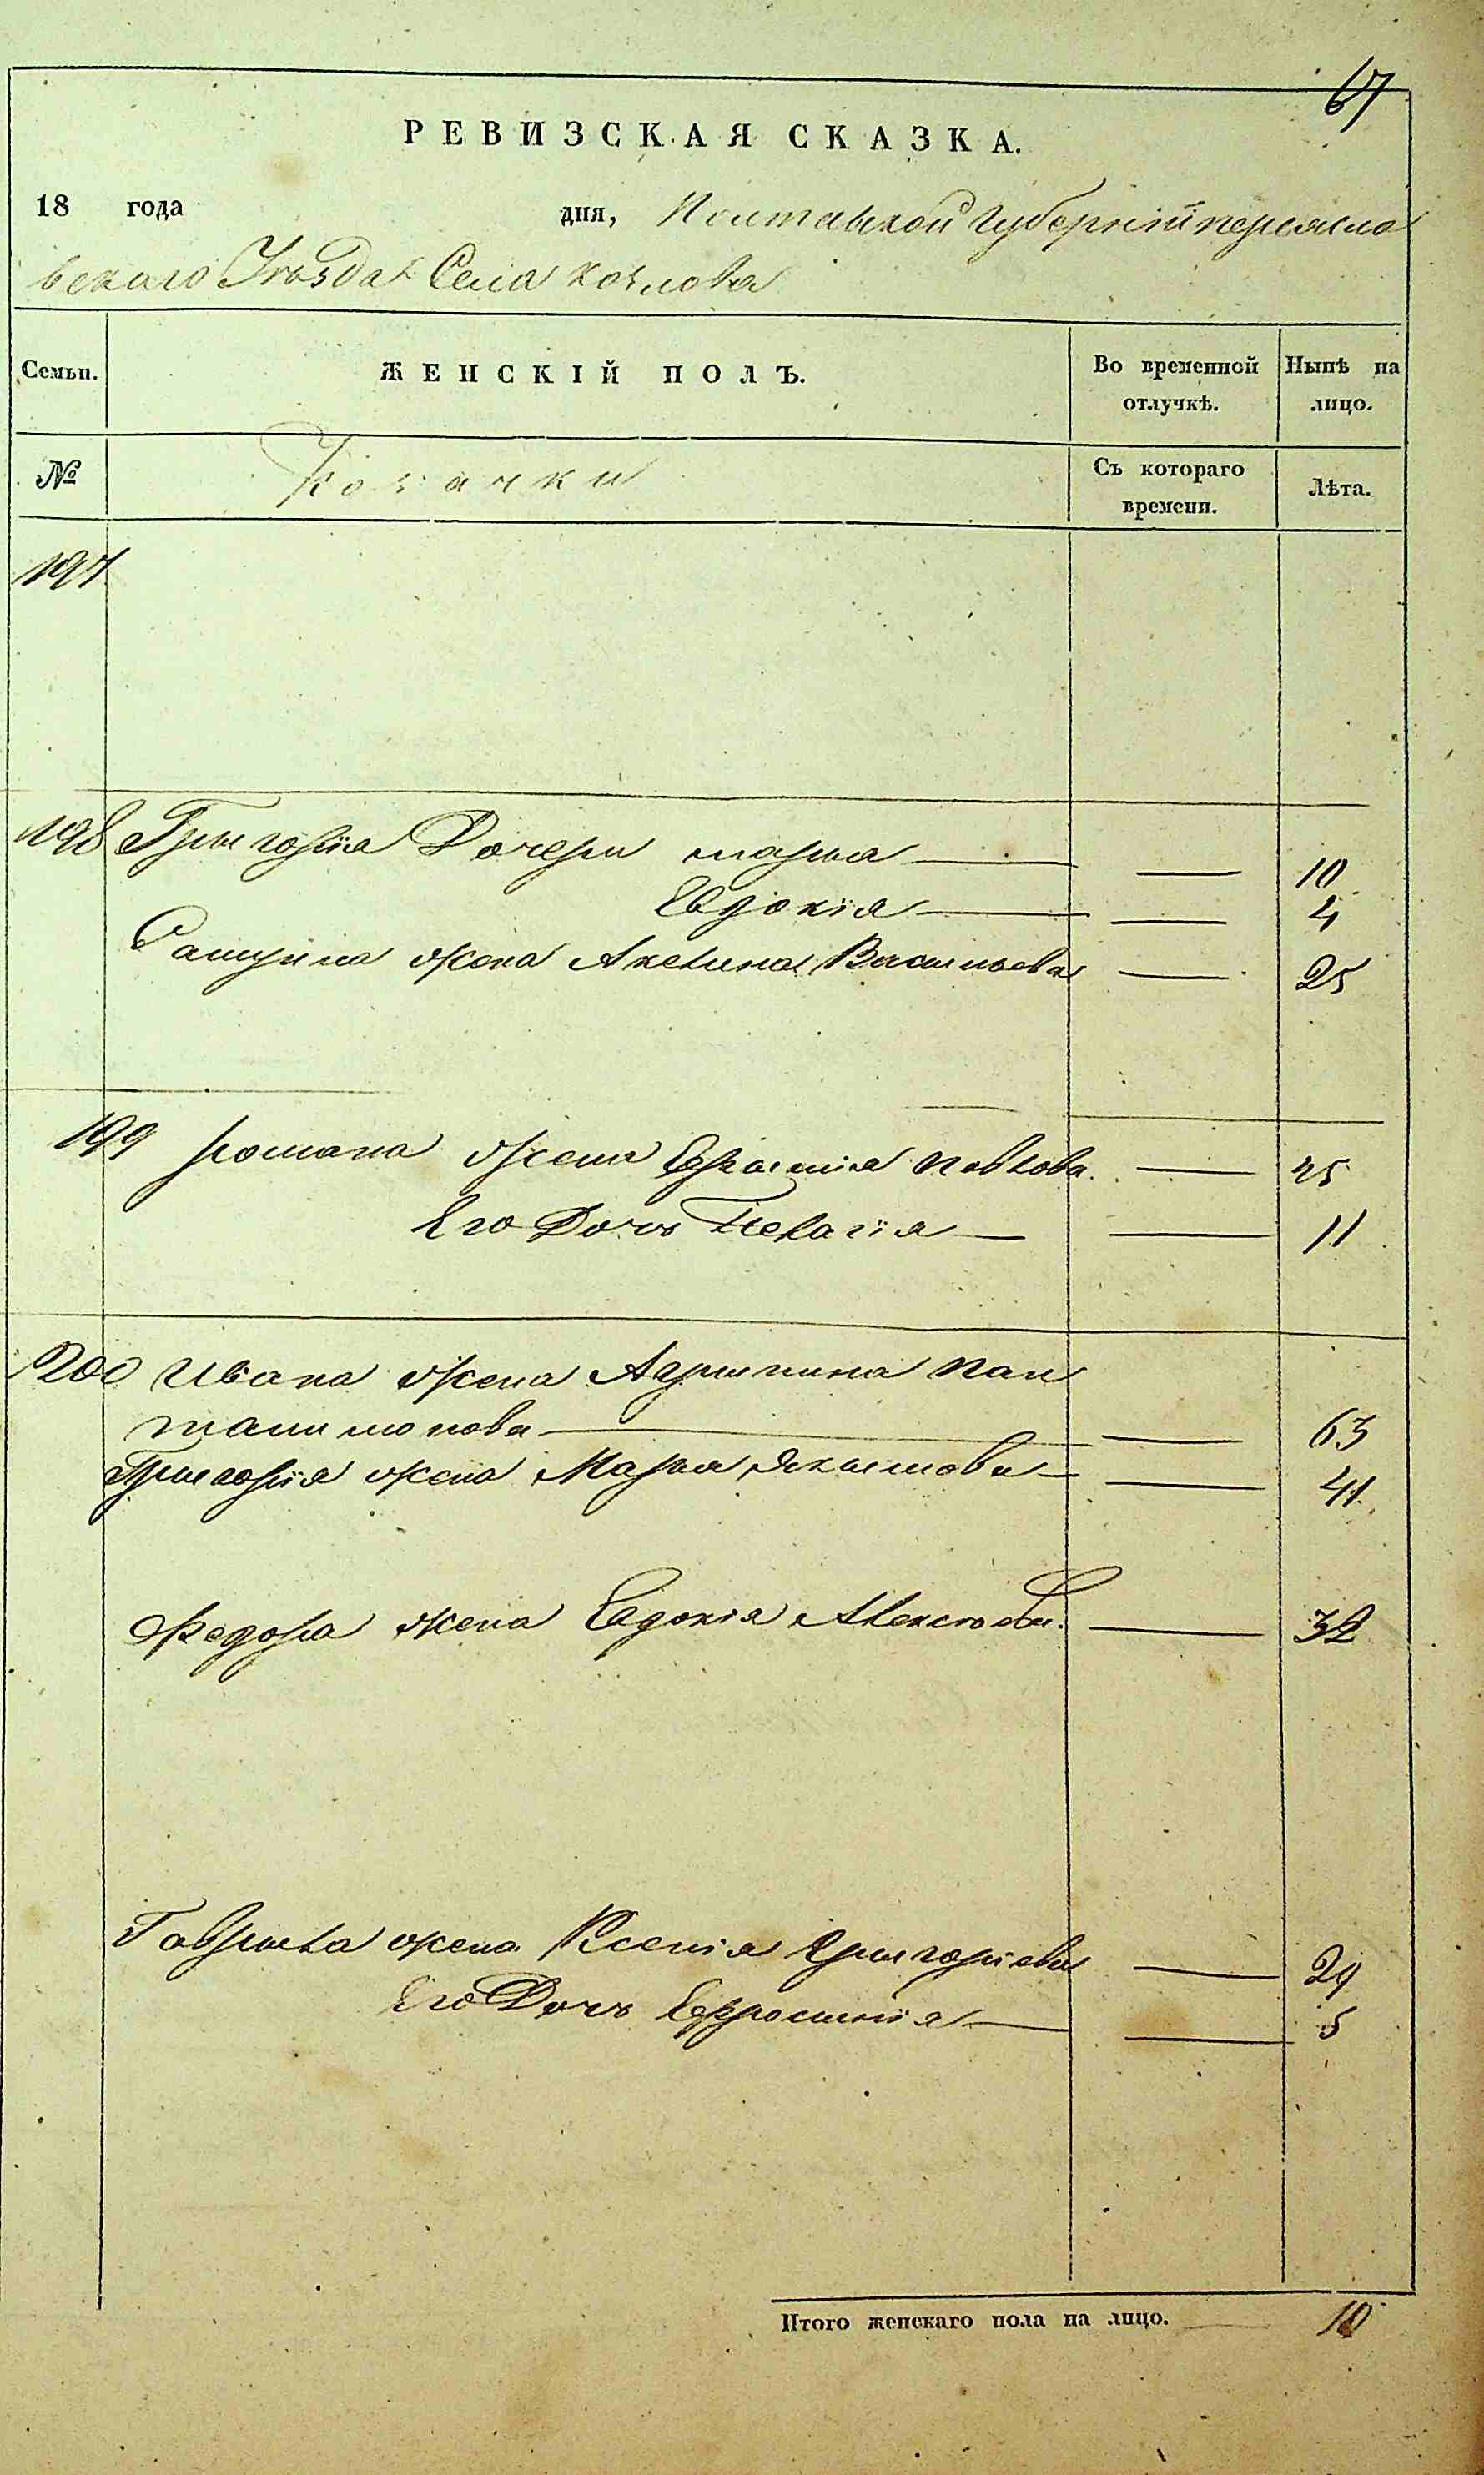 67
РЕВИЗСКАЯ СКАЗКА.
18 года дня, Полтавской Губерніи переясло
вскаго Уѣзда Села Козлова
Семьи. ЖЕНСКІЙ ПОЛЪ. Во временной отлучкѣ. Нынѣ на лицо.
№ Козачки Съ котораго времени. Лѣта.
197
198 Григорія Дочери марья — — 10
Евдокія — — 4
жена Акелина Васильева — 25
199 романа жена Павлова. —
Его Дочь Пелагія — — 11
200 Ивана жена Агрипина Пан
талимонова — — 63
Григорія жена Марья Якимова — — 41
Федора жена Евдокія Алексѣева. — 32
Гаврила жена Ксенія Григоріева — 29
Его Дочь Ефросинія — — 5
Итого женскаго пола на лицо. — 10